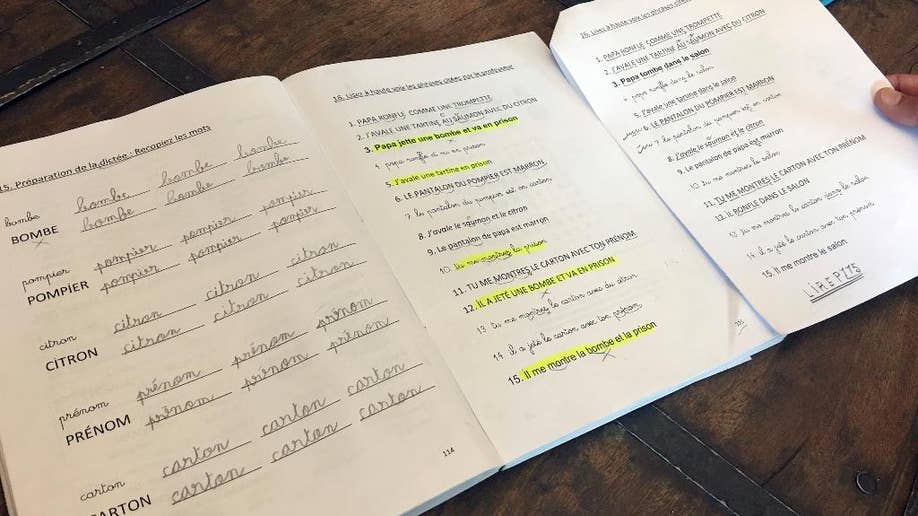 15. Préparation de la dictée : Recopiez les mots
bombe bombe bombe bombe
BOMBE bombe bombe bombe
pompier pompier pompier pompier
POMPIER pompier pompier pompier
citron citron citron citron
CITRON citron citron citron
prénom prénom prénom prénom
PRÉNOM prénom prénom prénom
carton carton carton carton
CARTON carton carton carton
114
16. Lisez à haute voix les phrases citées par le professeur
1. PAPA RONFLE COMME UNE TROMPETTE
2. J'AVALE UNE TARTINE AU SAUMON AVEC DU CITRON
3. Papa jette une bombe et va en prison
4. papa ronfle et va en prison
5. J'avale une tartine en prison
6. LE PANTALON DU POMPIER EST MARRON
7. le pantalon du pompier est en carton
8. J'avale le saumon et le citron
9. Le pantalon de papa est marron
10. tu me montres la prison
11. TU ME MONTRES LE CARTON AVEC TON PRÉNOM
12. IL A JETÉ UNE BOMBE ET VA EN PRISON
13. tu me montres le carton avec du citron
14. il a jeté le carton avec ton prénom
15. Il me montre la bombe et la prison
16. Lisez à haute voix les phrases citées
1. PAPA RONFLE COMME UNE TROMPETTE
2. J'AVALE UNE TARTINE AU SAUMON AVEC DU CITRON
3. Papa tombe dans le salon
4. papa ronfle dans le salon
5. J'avale une tartine dans le salon
6. LE PANTALON DU POMPIER EST MARRON
7. le pantalon du pompier est en carton
8. J'avale le saumon et le citron
9. Le pantalon de papa est marron
10. tu me montres le salon
11. TU ME MONTRES LE CARTON AVEC TON PRÉNOM
12. IL RONFLE DANS LE SALON
13. tu me montres le carton dans le salon
14. il a jeté le carton avec ton prénom
15. Il me montre le salon